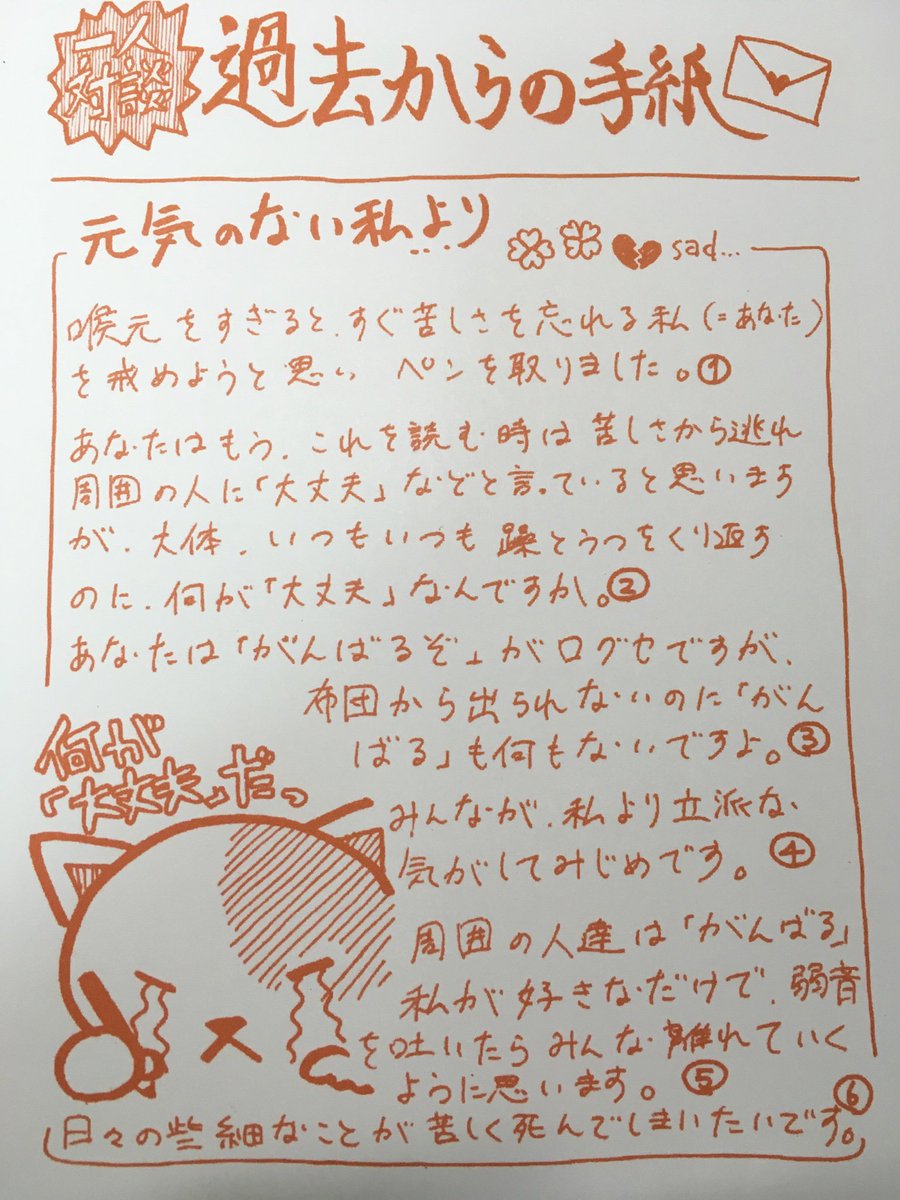 一人
対談
過去からの手紙
元気のない私より
sad...
喉元をすぎると、すぐ苦しさを忘れる私(=あなた)
を戒めようと思い ペンを取りました。①
あなたはもう、これを読む時は苦しさから逃れ
周囲の人に「大丈夫」などと言っていると思います
が、大体、いつもいつも躁とうつをくり返す
のに、何が「大丈夫」なんですか。②
あなたは「がんばるぞ」がログセですが、
布団から出られないのに「がん
ばる」も何もないですよ。③
何が
「大丈夫」だっ
みんなが、私より立派な
気がしてみじめです。④
周囲の人達は「がんばる」
私が好きなだけで、弱音
を吐いたらみんな離れていく
ように思います。⑤
日々の些細なことが苦しく死んでしまいたいです。⑥